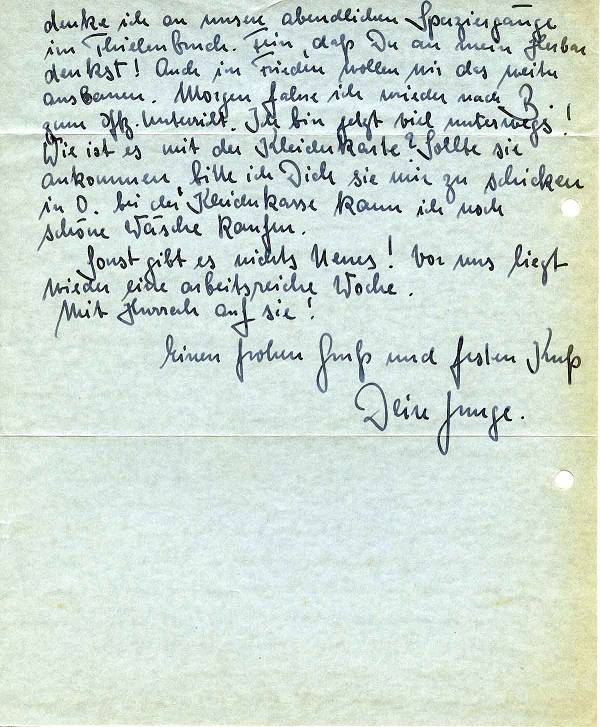 denke ich an unsere abendlichen Spaziergänge
im Thielenbruch. Fein, daß Du an mein Herbar
denkst! Auch im Frieden wollen wir das weiter
ausbauen. Morgen fahre ich wieder nach B.
zum Uffz. Unterricht. Ich bin jetzt viel unterwegs!
Wie ist es mit der Kleiderkarte? Sollte sie
ankommen bitte ich Dich sie mir zu schicken
in O. bei der Kleiderkasse kann ich noch
schöne Wäsche kaufen.
Sonst gibt es nichts Neues! Vor uns liegt
wieder eine arbeitsreiche Woche.
Mit Hurrah auf sie!
Einen frohen Gruß und festen Kuß
Dein Junge.